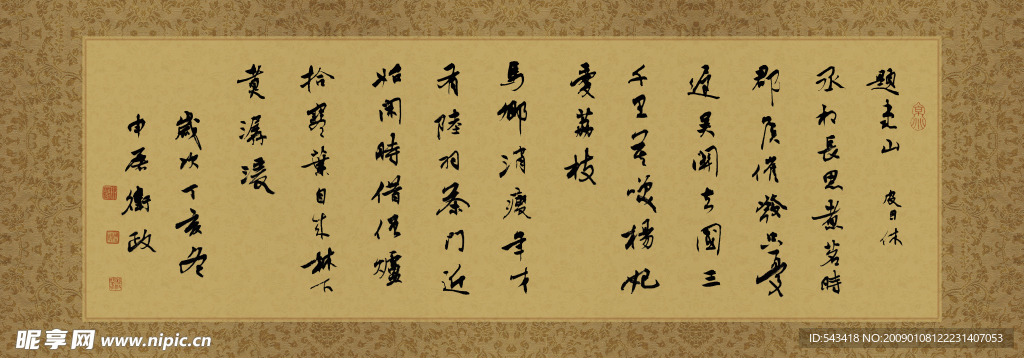 題惠山 皮日休
丞相長思煮茗時
郡侯催發只憂
遲吳關去國三
千里莫笑楊妃
愛荔枝
馬卿消瘦年才
有陸羽茶門近
始閑時借僧爐
拾寒葉自來林下
煮潺湲
歲次丁亥冬
申衡政
昵享网 www.nipic.cn
ID:543418 NO:20090108122231407053